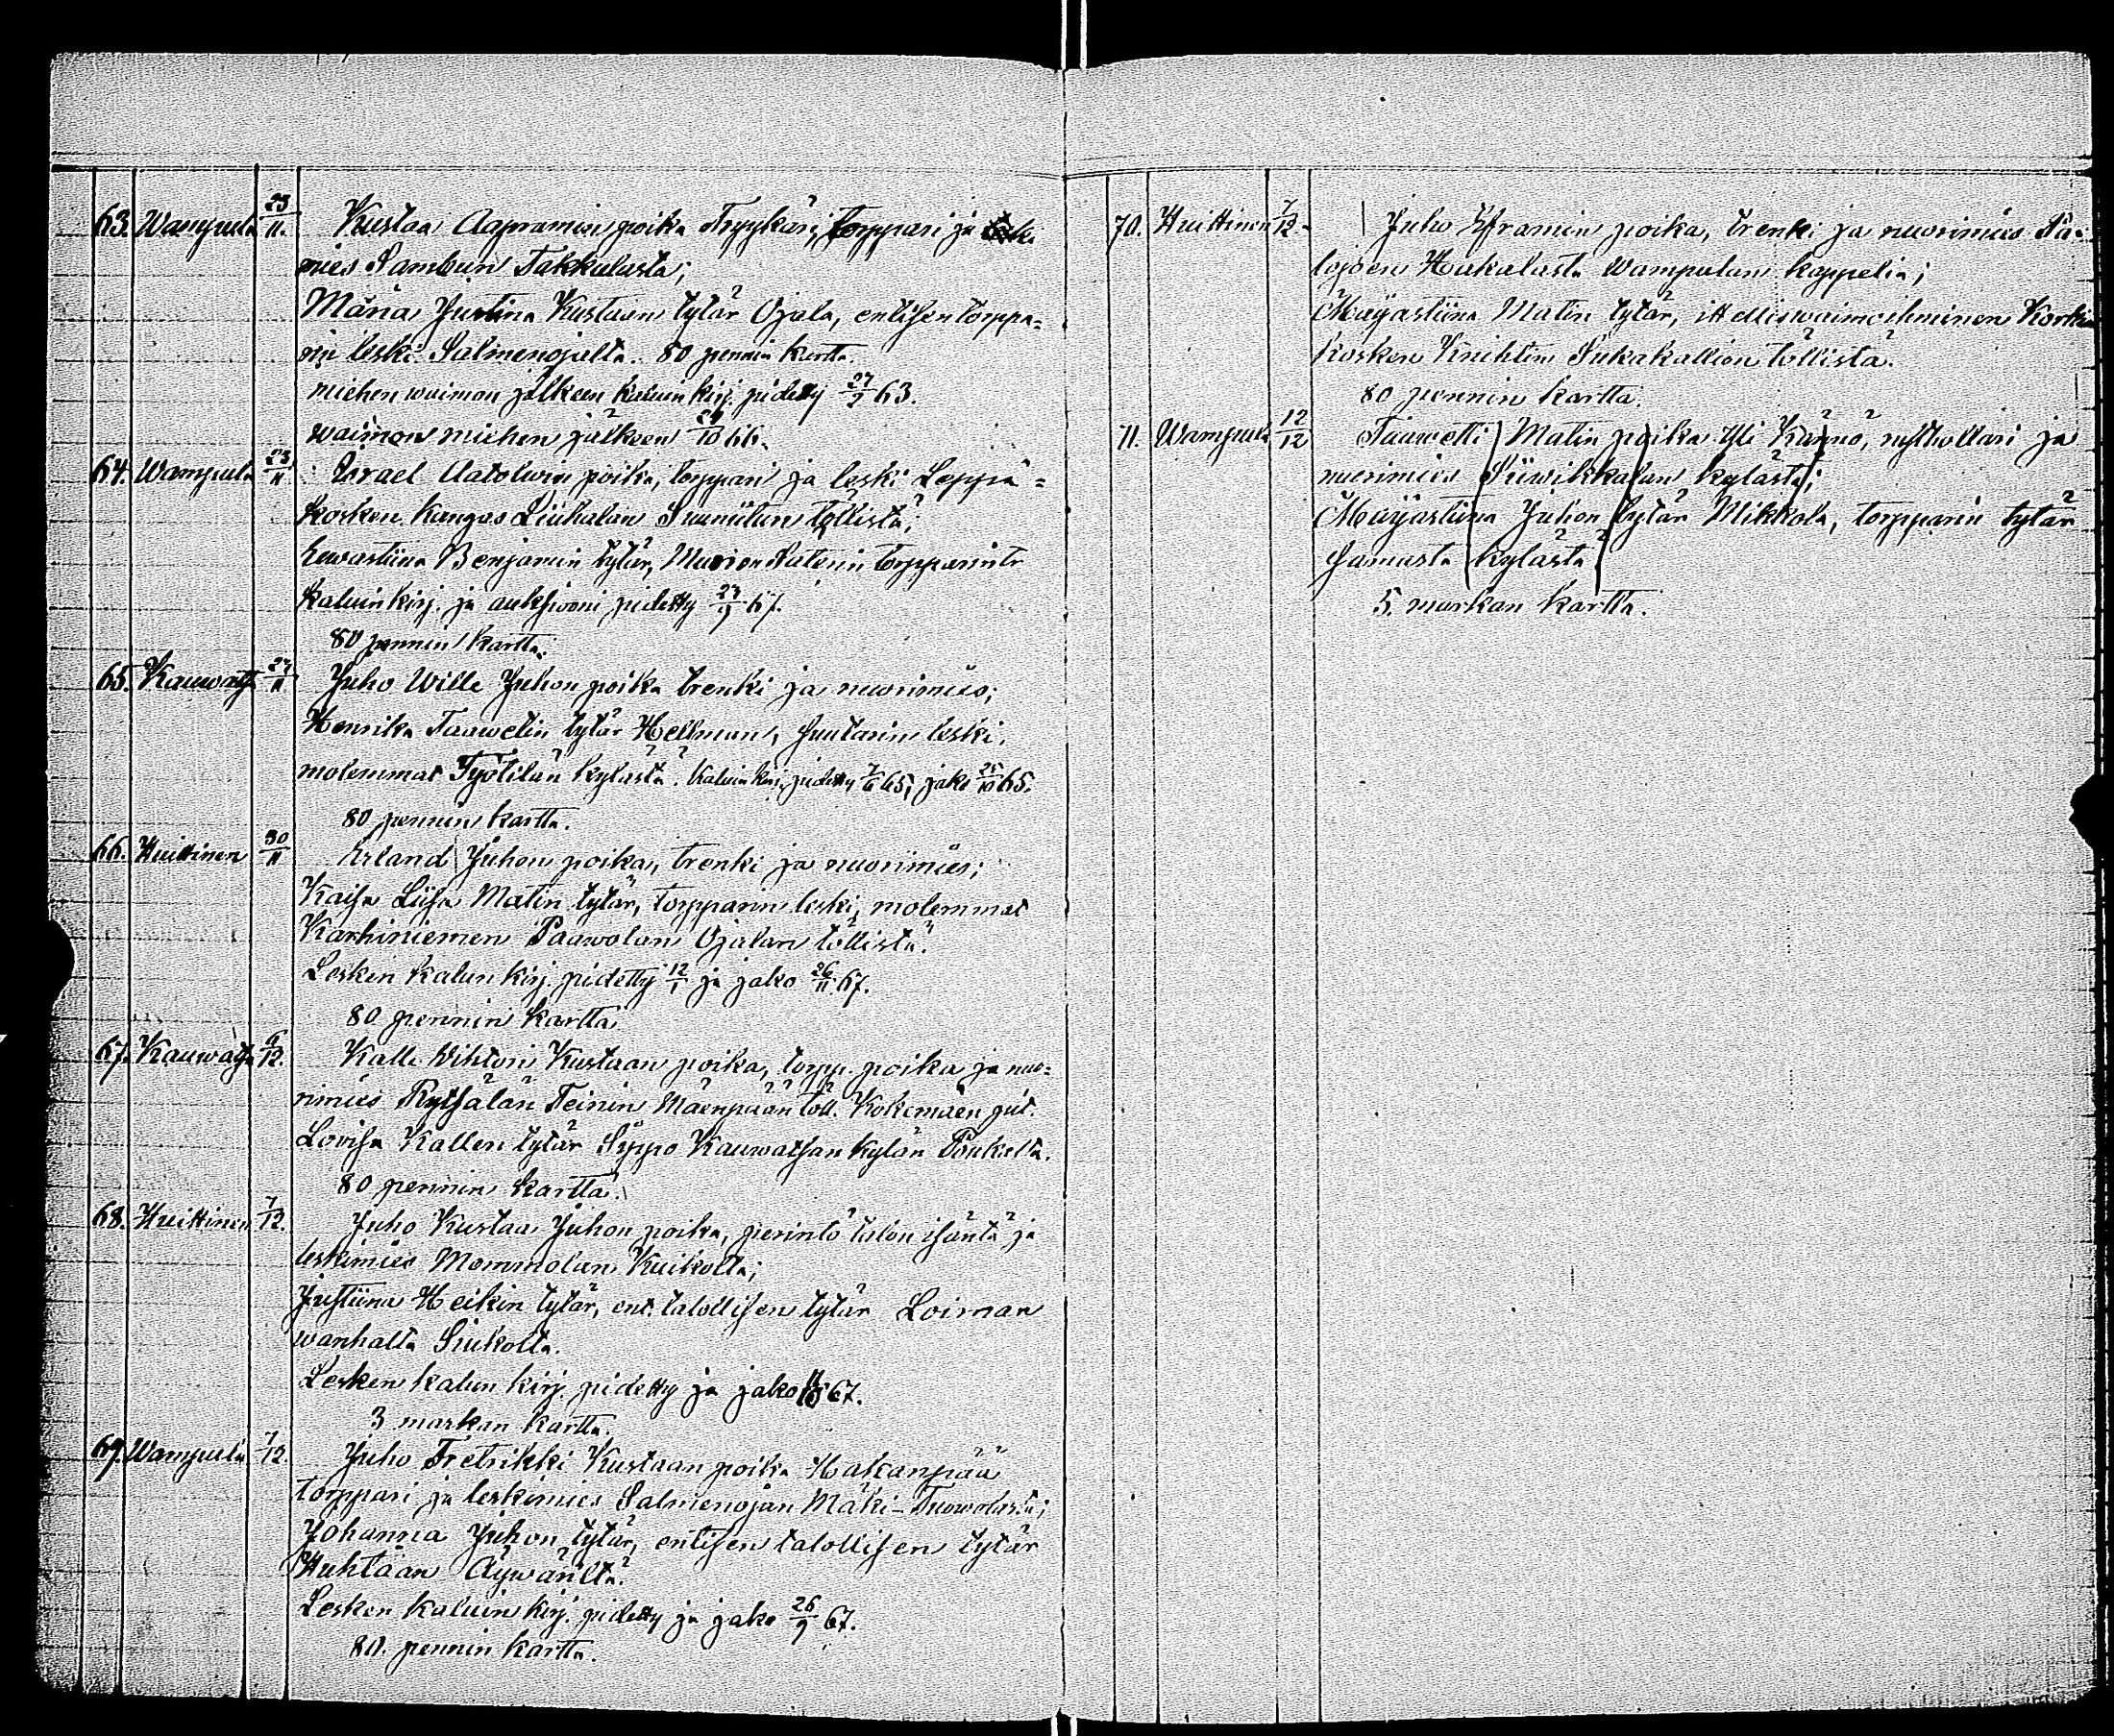 63. Wampula 23/11. Kustaa Aapramin poika Tryykäri, torppari ja leski
mies Sambun Takkulasta;
Maria Justina Kustaan tytär Ojala, entisen torppa=
rin leski Salmenojalta. 80 pennin kartta.
miehen waimon jälkeen kaluin kirj. pidetty 27/2 63.
waimon miehen jälkeen 29/10 66.
64. Wampula 23/11 Israel Aatolwin poika, torppari ja leski Leppä=
kosken Kangas Liuhalan Suuniitun töllistä;
Eewastiina Benjamin tytär, torpparin tr
Kaluinkirj. ja auksiooni pidetty 27/9 67.
80 pennin kartta.
65. Kauwatsa 27/11 Juho Wille Juhon poika trenki ja nuorimies;
Henrika Taawetin tytär Hellman, suutarin leski,
molemmat Työtilän kylästä. Kaluin kirj. pidetty 7/6 65, jako 25/10 65.
80 pennin kartta.
66. Huittinen 30/11 Erland Juhon poika, trenki ja nuorimies;
Kaisa Liisa Matin tytär, torpparin leski, molemmat
Karhiniemen Paawolan Ojalan töllistä.
Leskin kalun kirj. pidetty 12/1 ja jako 26/11 67.
80 pennin kartta.
67. Kauwatsa 6/12. Kalle Wihtori Kustaan poika, torpp. poika ja nuo=
rimies Rytsälän Teinin Mäenpään töll. Kokemäen pit.
Lovisa Kallen tytär Säppo Kauwatsan kylän Pönkältä.
80 pennin kartta.
68. Huittinen 7/12. Juho Kustaa Juhon poika, perintö talon isäntä ja
leskimies Mommolan Kuikolta;
Justiina Heikin tytär, ent. talollisen tytär Loiman
wanhalta Siukolta.
Lesken kalun kirj. pidetty ja jako 67.
3 markan kartta.
69. Wampula 7/12. Juho Fretrikki Kustaan poika Hakanpää
torppari ja leskimies Salmenojan Mäki-Tuowolasta;
Johanna Juhon tytär, entisen talollisen tytär
Huhtaan Äywäriltä.
Lesken kaluin kirj. pidetty ja jako 26/9 67.
80. pennin kartta.
70. Huittinen 7/12. Juho Eframin poika, trenki ja nuorimies Sä=
lojoen Hakalasta Wampulan kappelia;
Maijastiina Matin tytär, ittellis waimoihminen Korkia
kosken Knihtin Sukakallion töllistä.
80 pennin kartta.
71. Wampula 12/12 Taawetti Matin poika Yli Kärno, rusthollari ja
nuorimies Siiwikkalan kylästä;
Maijastiina Juhon tytär Mikkola, torpparin tytär
samasta kylästä
5 markan kartta.